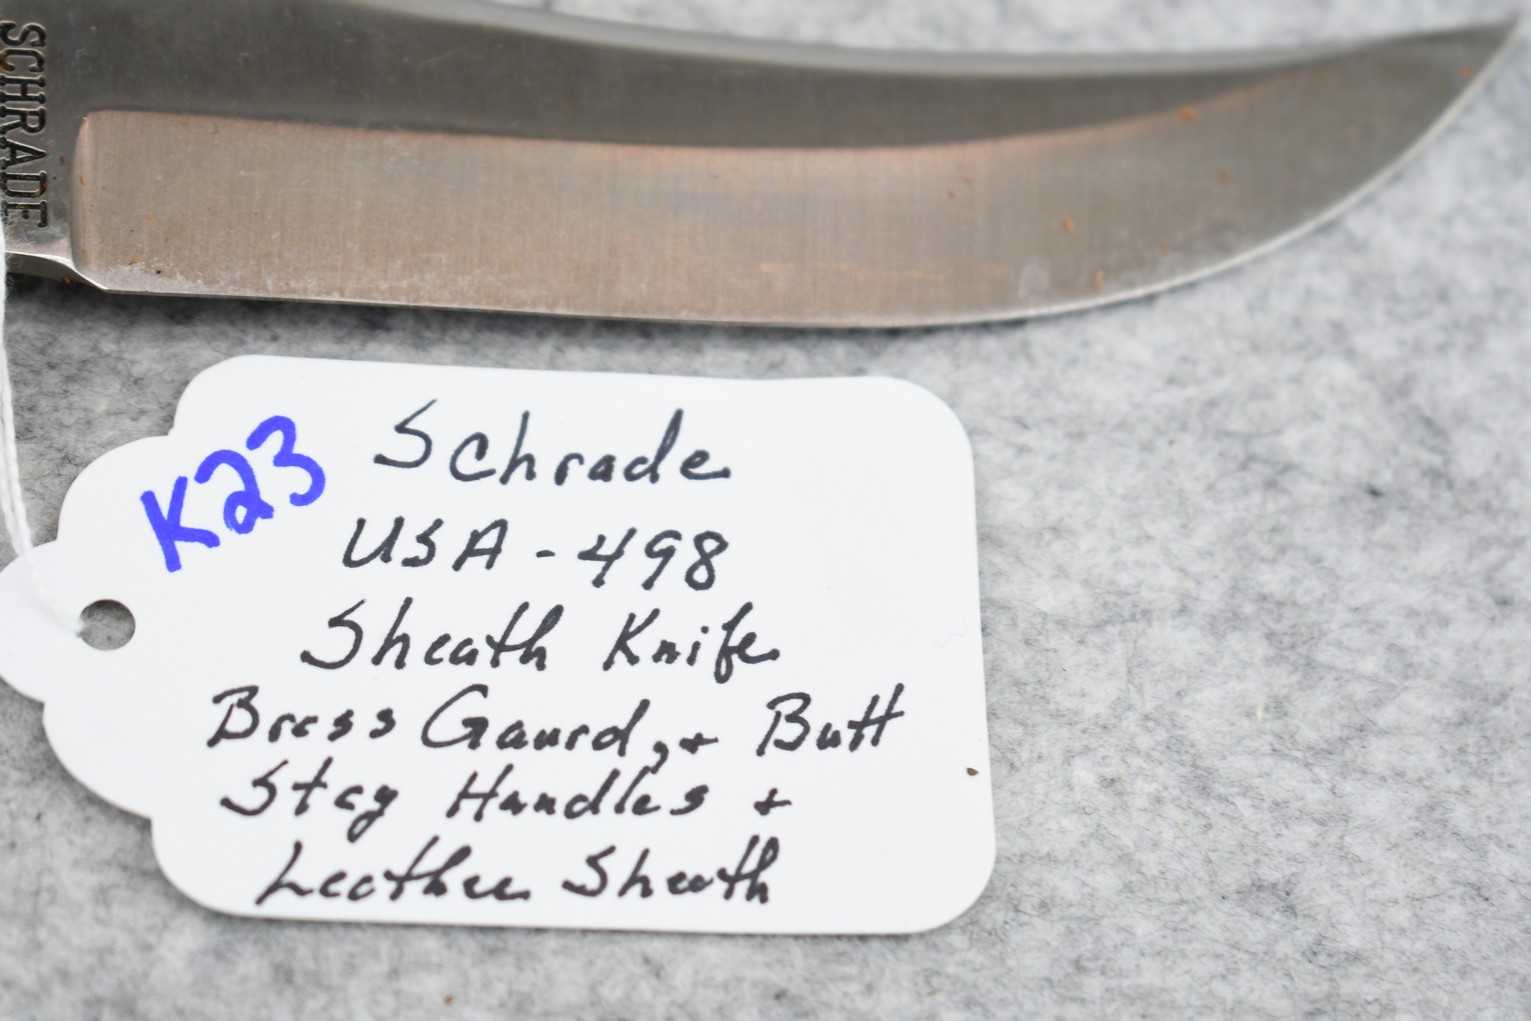 SCHRADE
K23
Schrade
USA - 498
Sheath Knife
Brass Gaurd, + Butt
Stag Handles +
Leather Sheath